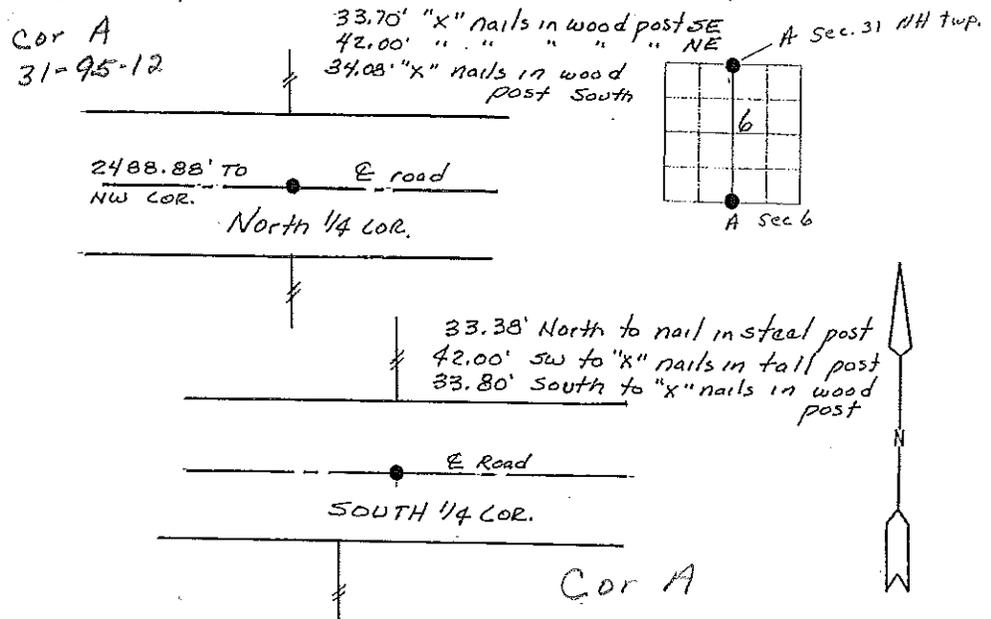 Cor A
31-95-12
33.70' "X" nails in wood post SE
42.00' " " " " " NE
34.08' "X" nails in wood
post South
A Sec. 31 NH twp.
6
A Sec 6
2488.88' TO
NW COR.
℄ road
North 1/4 COR.
33.38' North to nail in steel post
42.00' SW to "X" nails in tall post
33.80' South to "X" nails in wood
post
N
℄ Road
SOUTH 1/4 COR.
Cor A